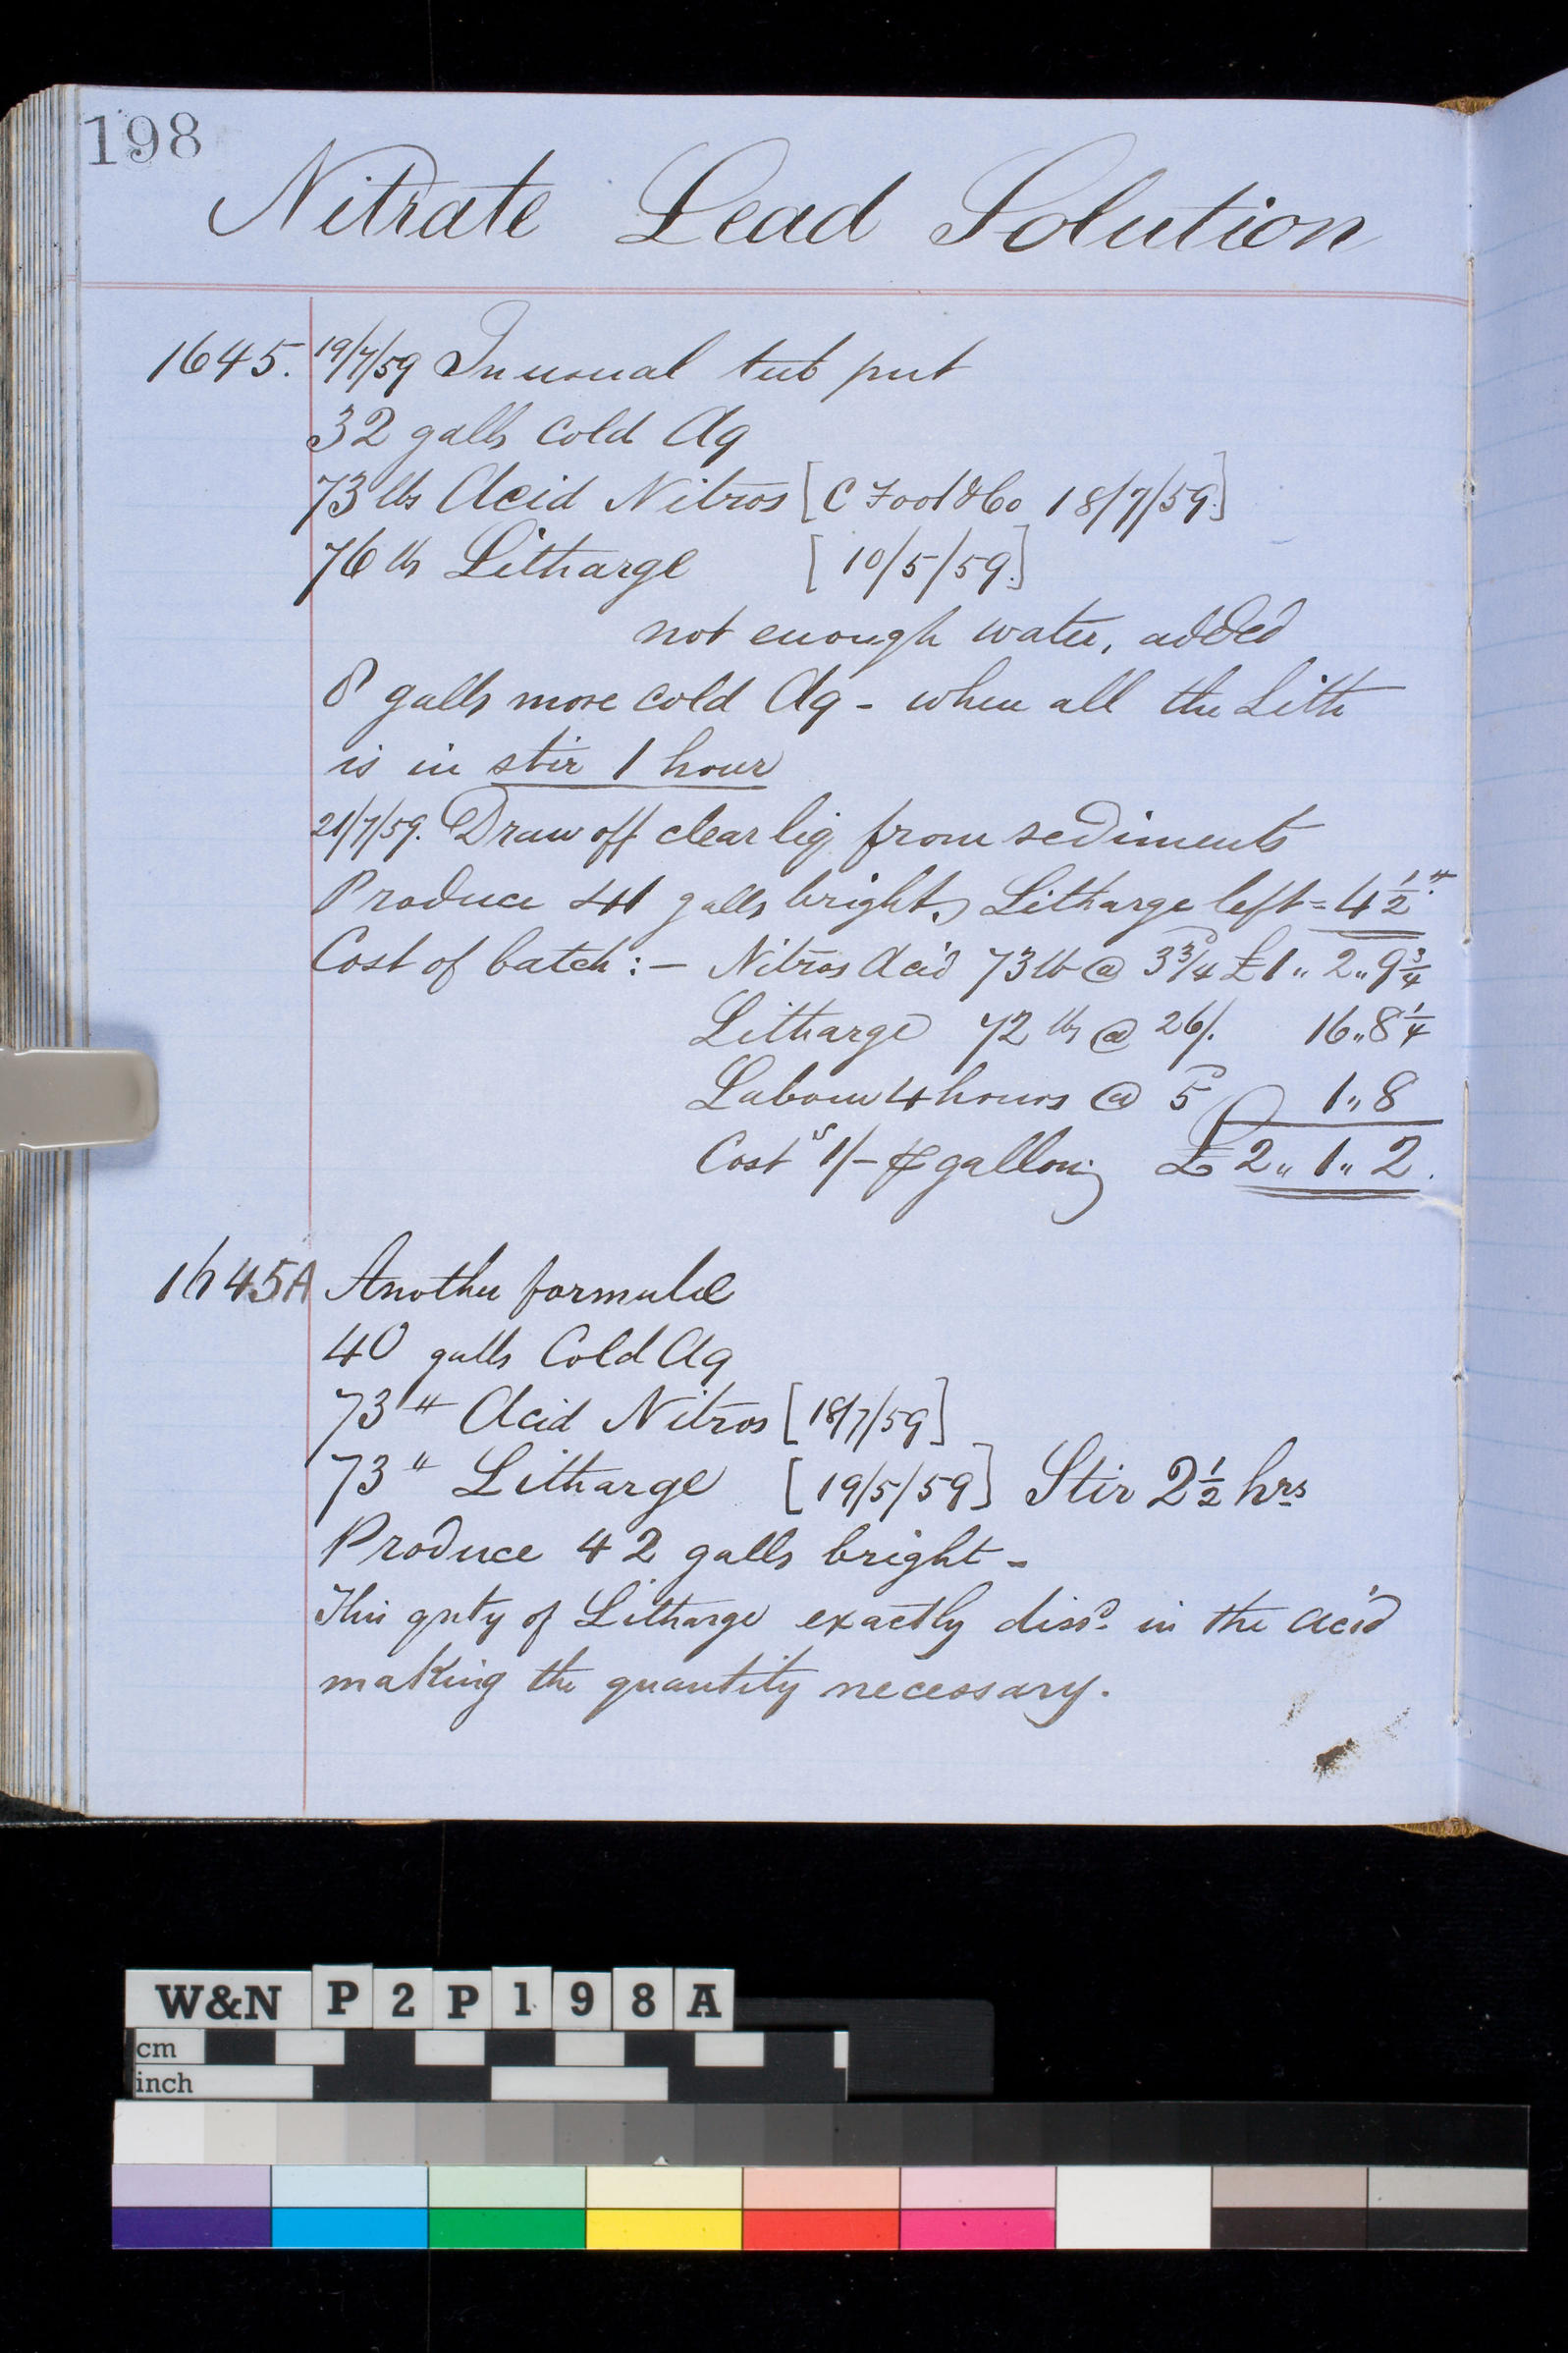 198
Nitrate Lead Solution
1645. 19/7/59 In usual tub put
32 galls cold Aq
73 lbs Acid Nitros [C Foot & Co 18/7/59.]
76 lbs Litharge [10/5/59.]
not enough water, added
8 galls more cold Aq - when all the Lith
is in stir 1 hour
21/7/59. Draw off clear liq from sediments
Produce 41 galls bright, Litharge left = 4 1/2 "
Cost of batch :- Nitros Acid 73 lb @ 3 3/4 £1 „ 2 „ 9 3/4
Litharge 72 lbs @ 26/. 16 „ 8 1/4
Labour 4 hours @ 5D 1 „ 8
Cost s 1/- ⅌ gallon £ 2 „ 1 „ 2.
1645A Another formulae
40 galls Cold Aq
73 " Acid Nitros [18/7/59]
73 " Litharge [19/5/59] Stir 2 1/2 hrs
Produce 42 galls bright -
This qnty of Litharge exactly dissd. in the acid
making the quantity necessary.
W&N P2P198A
cm
inch